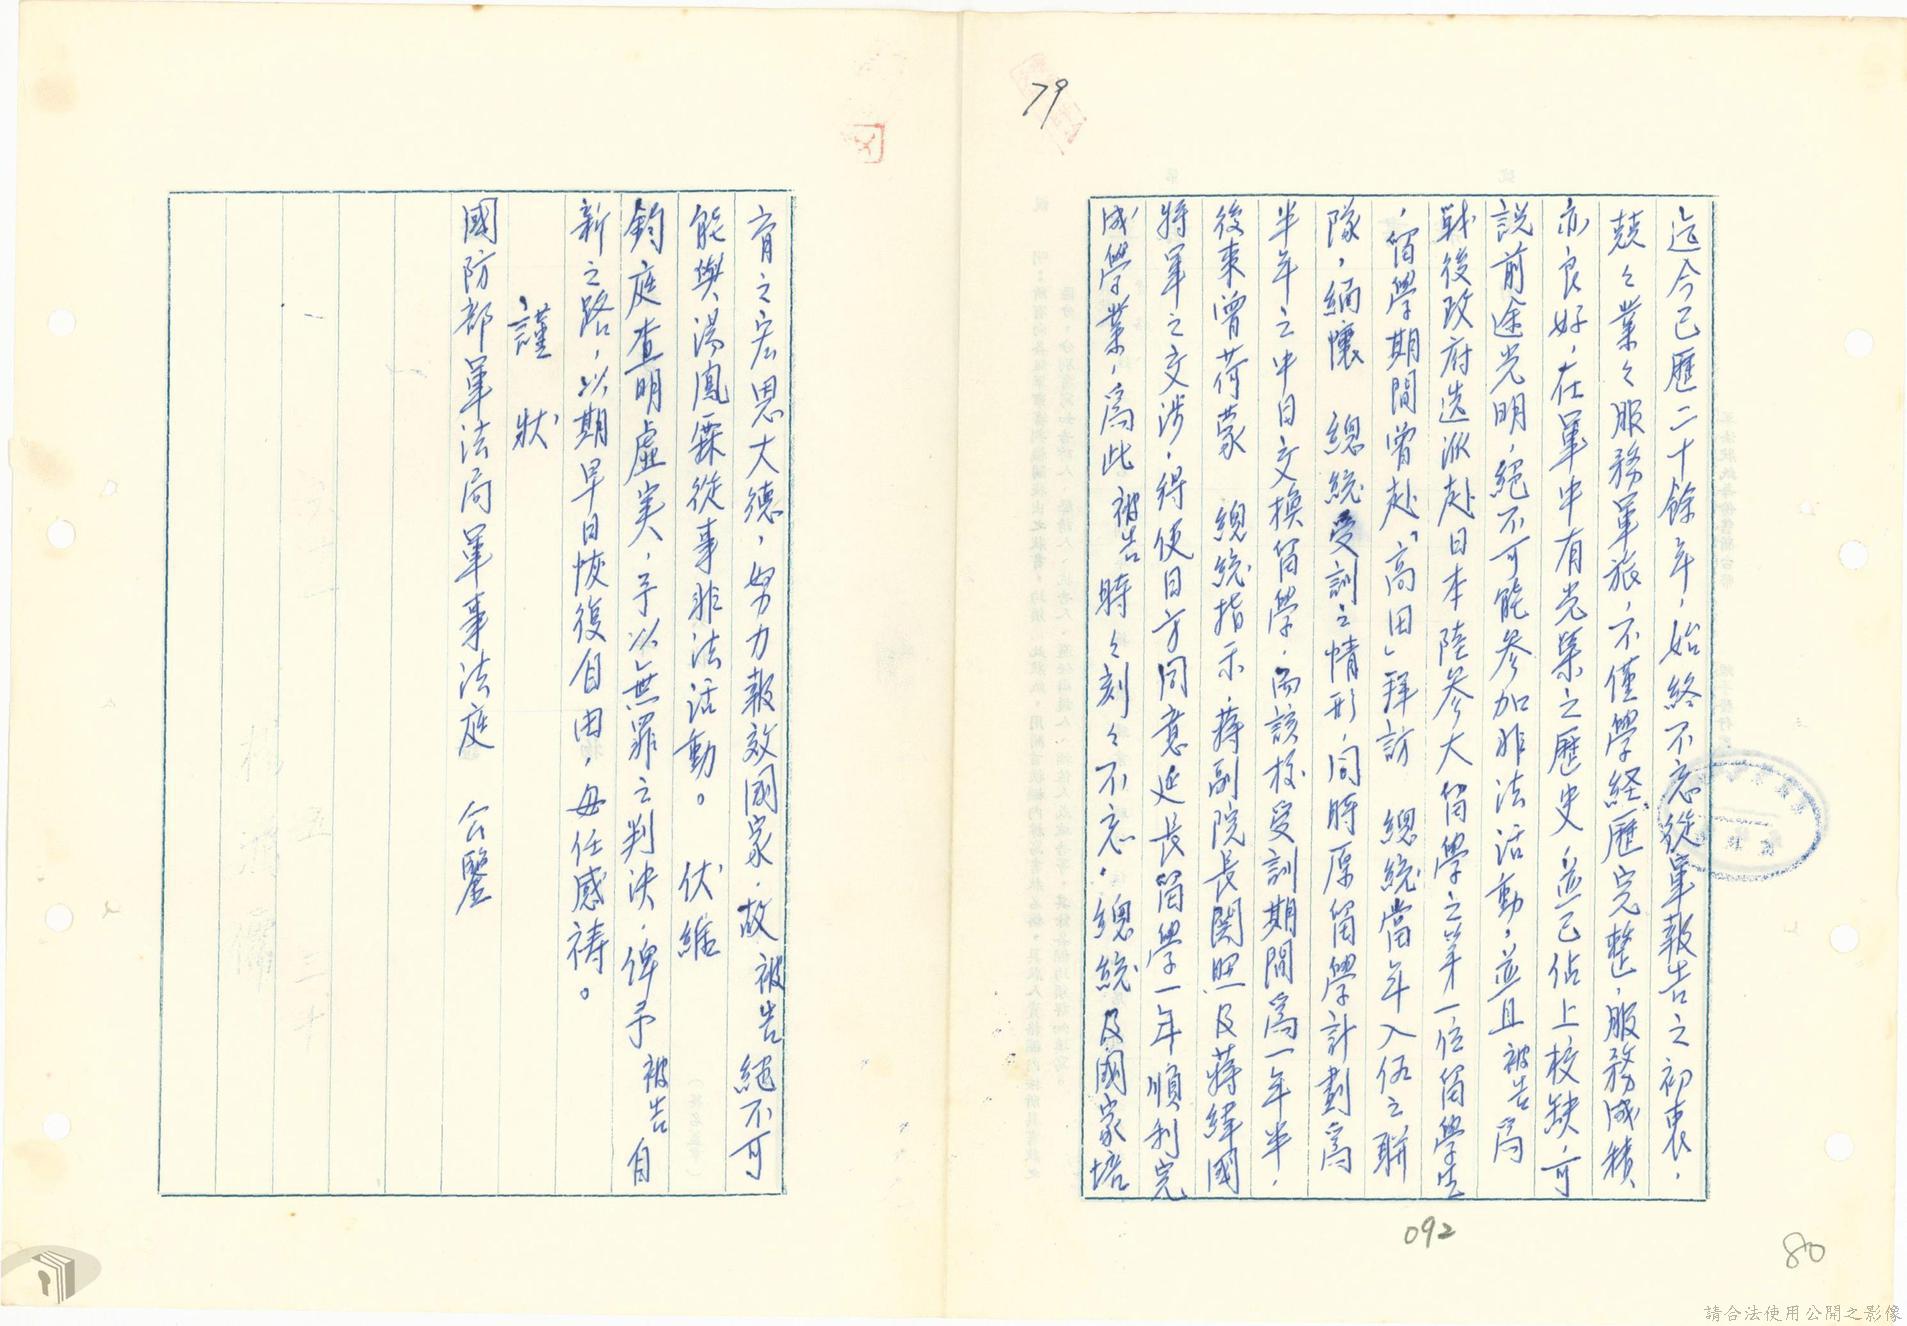 79
迄今已歷二十餘年，始終不忘從軍報告之初衷，
兢々業々服務軍旅，不僅學経歷完整，服務成績
亦良好，在軍中有光榮之歷史，並已佔上校缺，可
説前途光明，絕不可能參加非法活動，並且被告為
戰後政府选派赴日本陸參大留學之第一位留學生
，留學期間曾赴「高田」拜訪　總統當年入伍之聯
隊，緬懷　總統受訓之情形，同時原留學計劃為
半年之中日交換留學，而該校受訓期間為一年半，
後来曾荷蒙　總統指示，蔣副院長関照及蔣緯國
將軍之交涉，得使日方同意延長留學一年順利完
成學業，為此被告時々刻々不忘，總統及國家培
092
80
育之宏恩大德，努力報效國家，故被告絕不可
能與湯鳳霖從事非法活動。　伏維
鈞庭查明虛実，予以無罪之判決，俾予被告自
新之路，以期早日恢復自由，毋任感祷。
謹　狀
國防部軍法局軍事法庭　公鑒
請合法使用公開之影像